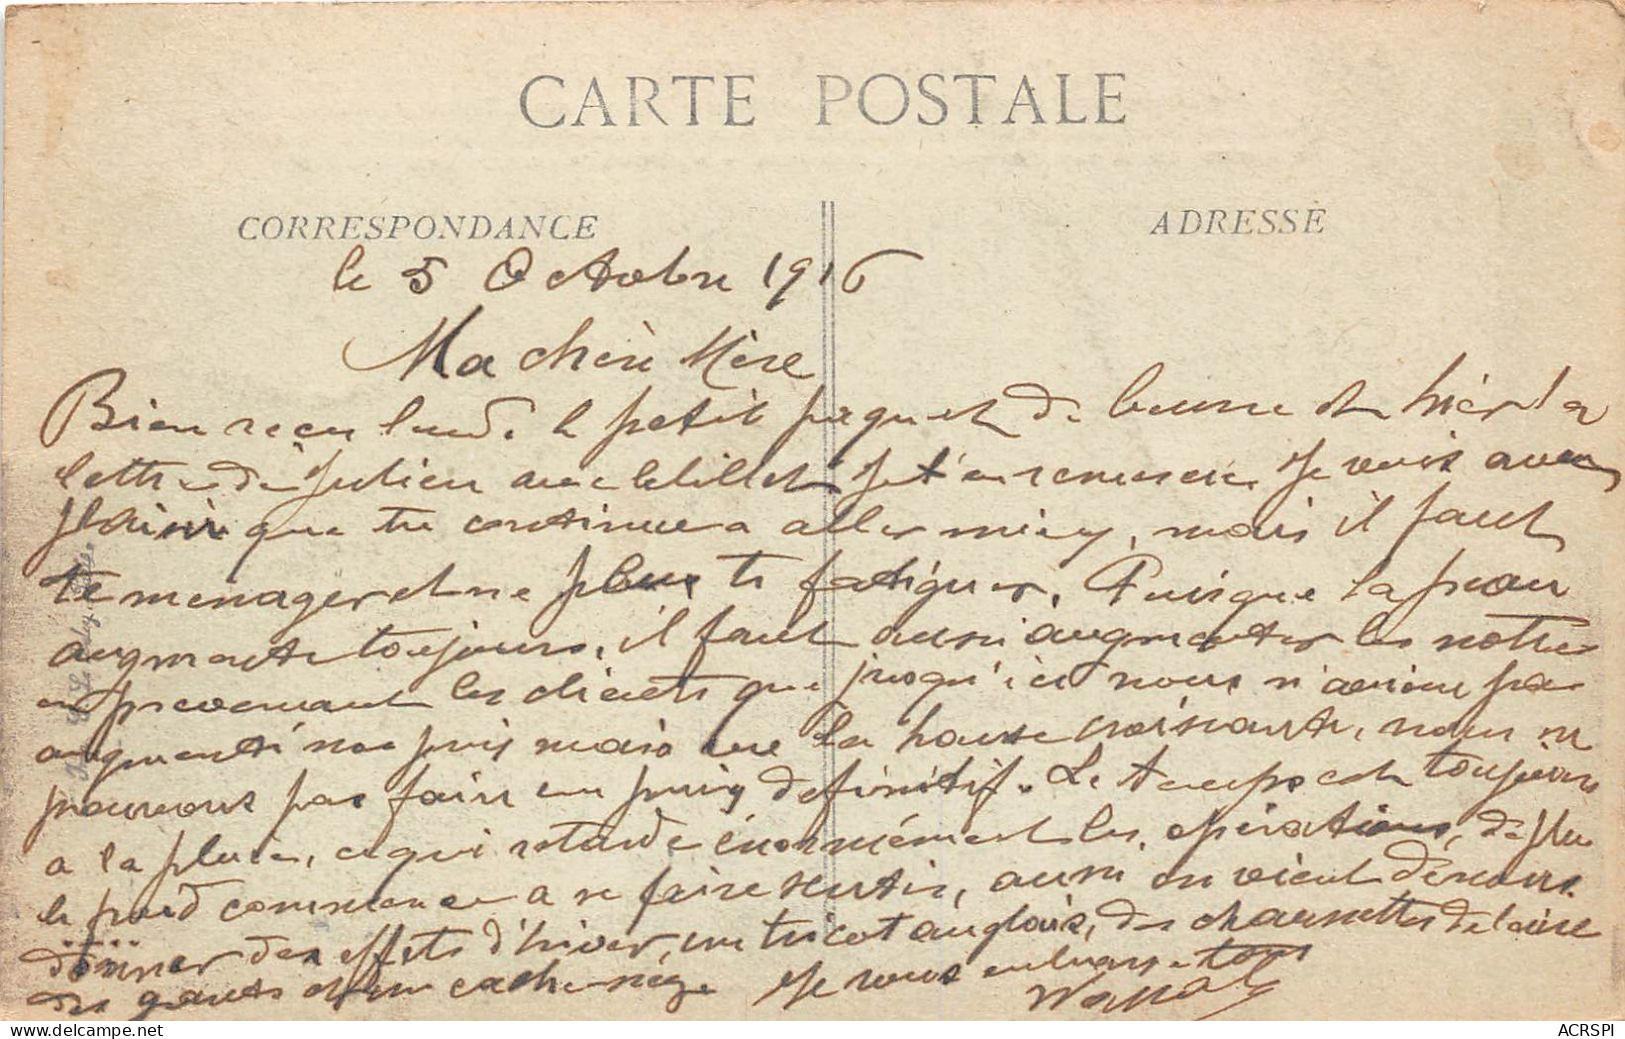 CARTE POSTALE
CORRESPONDANCE
ADRESSE
le 5 Octobre 1916
Ma chère Mère
Bien reçu lundi le petit paquet de beurre et hier la
lettre de Julien avec le billet je t'en remercie. Je vois avec
plaisir que tu continues a aller mieux, mais il faut
te menager et ne plus te fatiguer. Puisque la peau
augmente toujours, il faut aussi augmenter les notres
en prevenant les clients que jusqu'ici nous n'avions pas
augmenté nos prix mais vu la hausse croissante, nous ne
pouvons pas faire un prix definitif. Le temps est toujours
a la pluie, ce qui retarde énormément les opérations, de plus
le froid commence a se faire sentir, aussi on vient de nous
donner des effets d'hiver, un tricot anglais, des chaussettes de laine
des gants et un cache-nez. Je vous embrasse tous
www.delcampe.net
bienvenu
ACRSPI